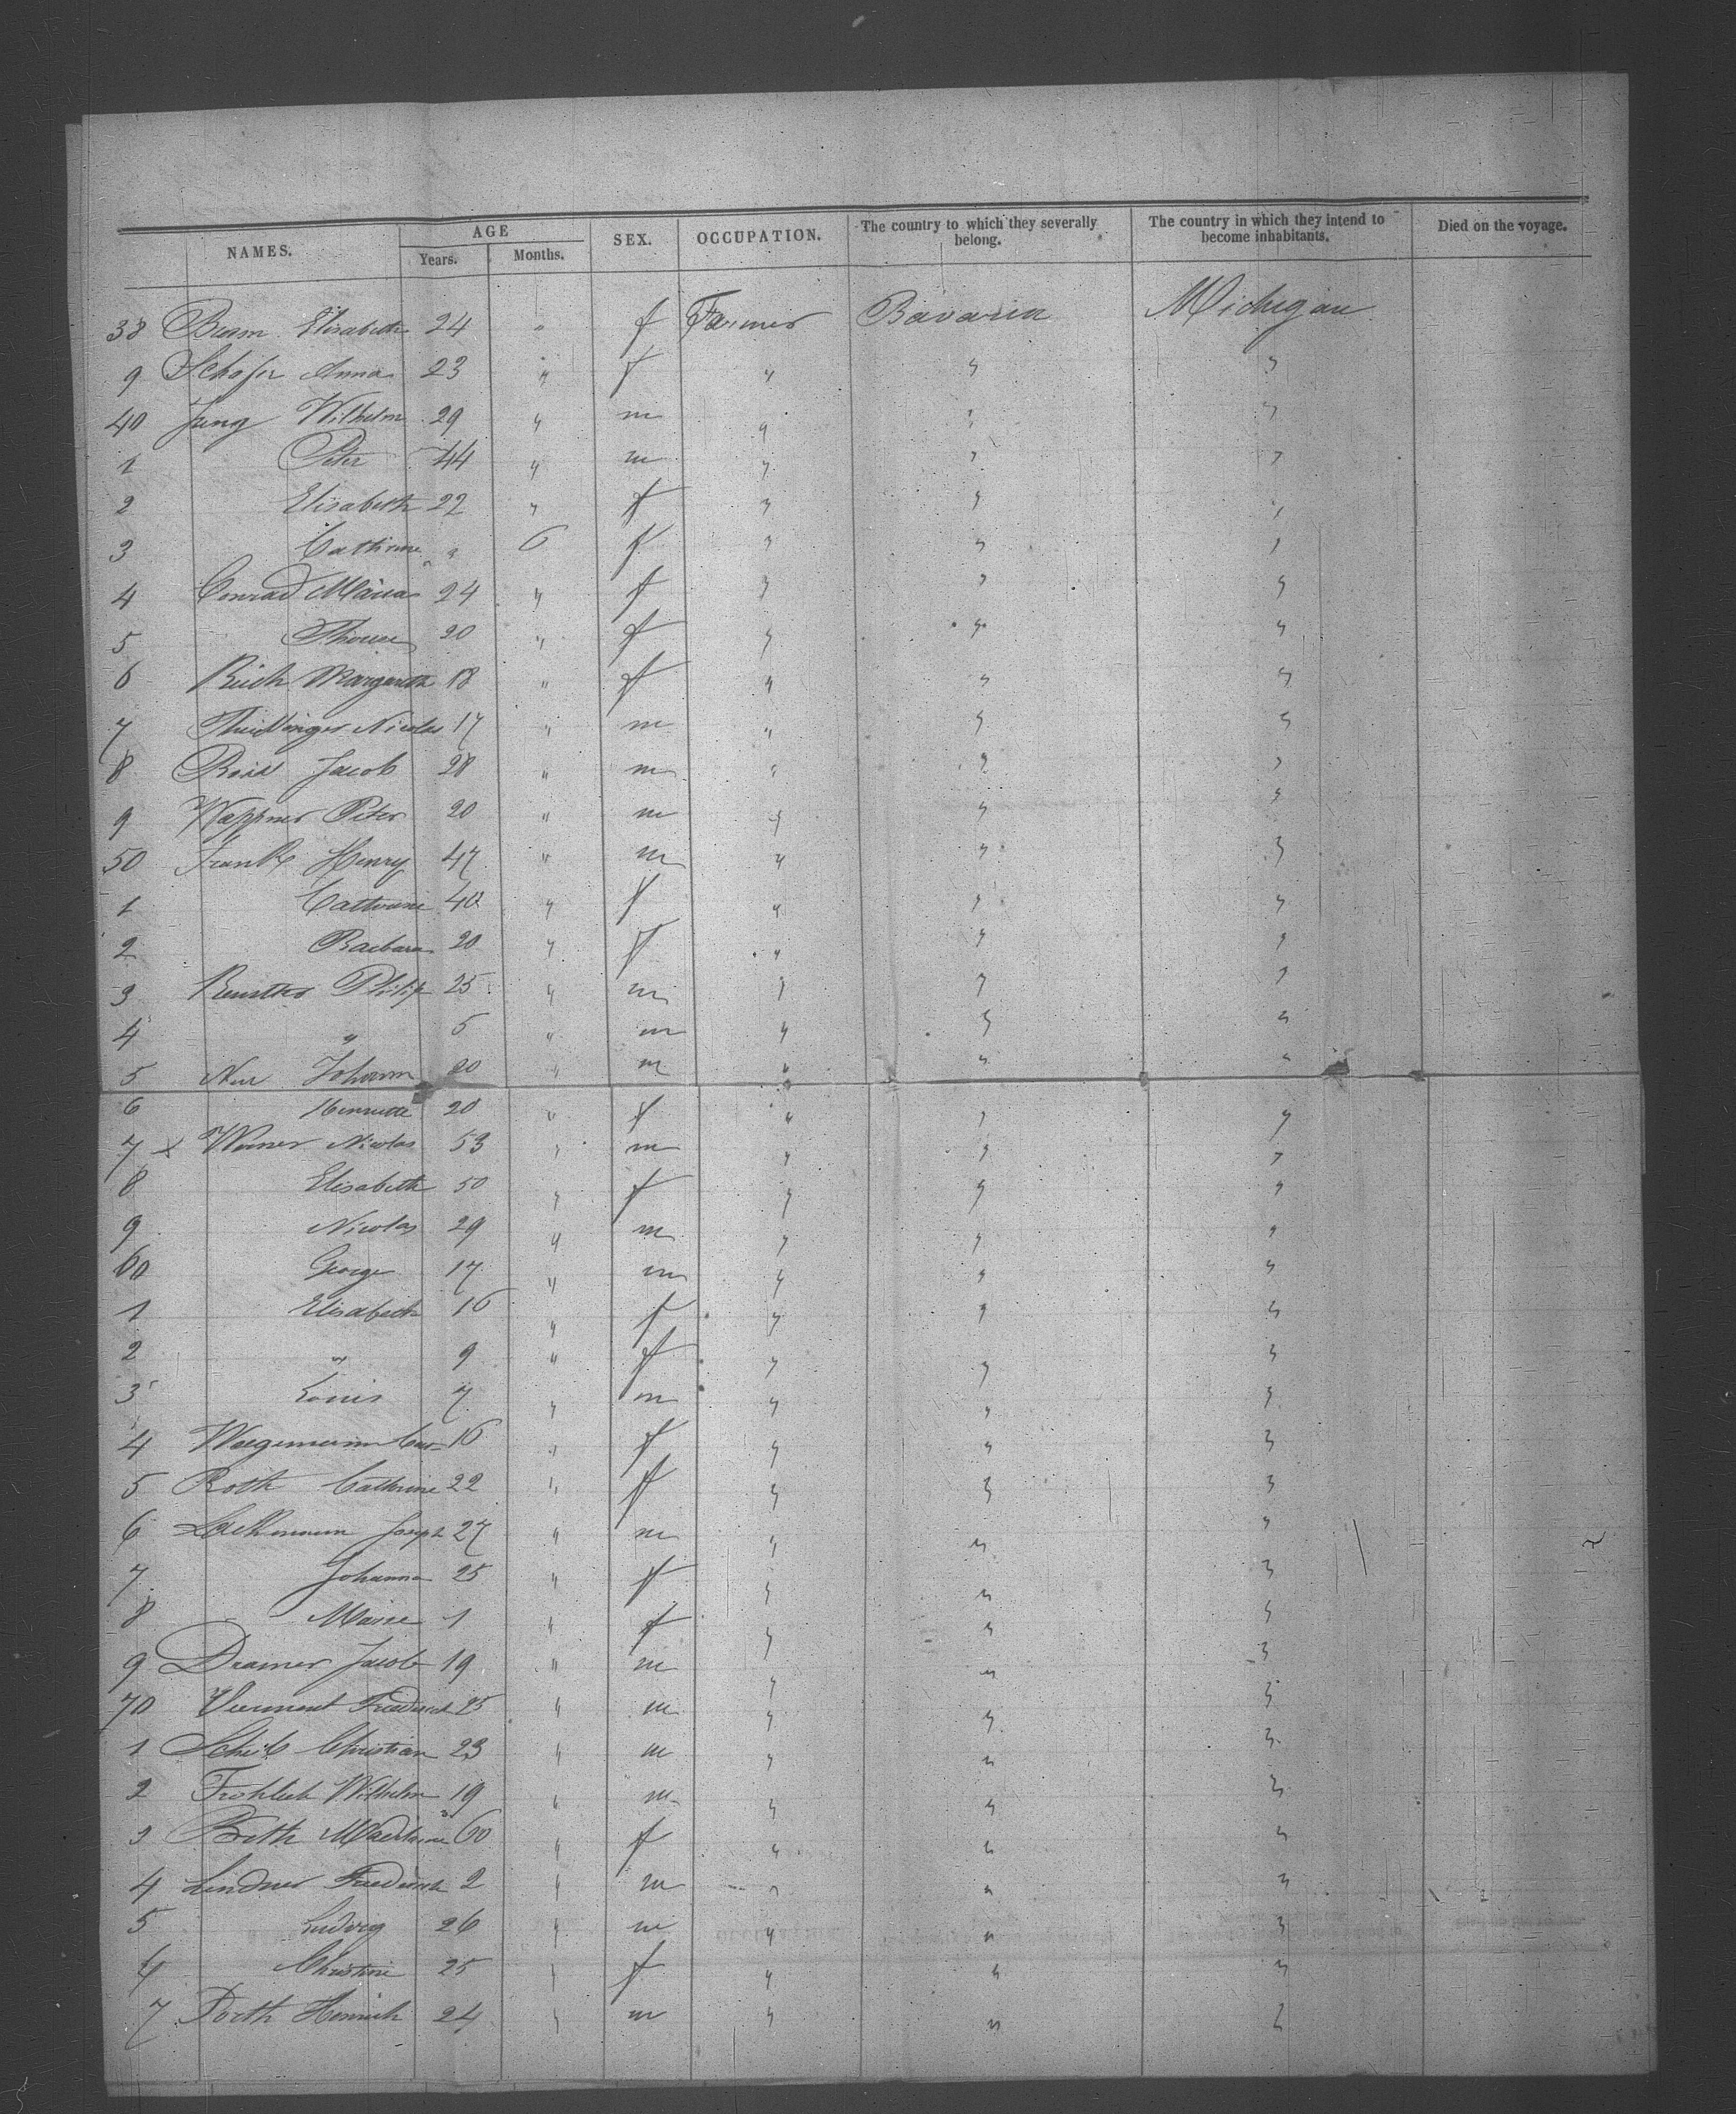 NAMES. AGE SEX. OCCUPATION. The country to which they severally belong. The country in which they intend to become inhabitants. Died on the voyage.
Years. Months.
38 Elisabeth 24 " f Farmer Bavaria Michigan
9 Schafer Anna 23 " f " " "
40 Jung Wilhelm 29 " m " " "
1 Peter 44 " m " " "
2 Elisabeth 22 " f " " "
3 Cathrine " 6 f " " "
4 Conrad Maria 24 " f " " "
5 Therese 20 " f " " "
6 Margareth 18 " f " " "
7 Nicolas 17 " m " " "
8 Jacob 28 " m " " "
9 Wappner Peter 20 " m " " "
50 Frank Henry 47 " m " " "
1 Cathrine 40 " f " " "
2 Barbara 20 " f " " "
3 Philip 25 " m " " "
4 " 5 " m " " "
5 Johann 20 " m " " "
6 Henriette 20 " f " " "
7 x Werner Nicolas 53 " m " " "
8 Elisabeth 50 " f " " "
9 Nicolas 29 " m " " "
60 George 17 " m " " "
1 Elisabeth 16 " f " " "
2 " 9 " f " " "
3 Louis 7 " m " " "
4 16 " f " " "
5 Roth Cathrine 22 " f " " "
6 Joseph 27 " m " " "
7 Johanna 25 " f " " "
8 Marie 1 " f " " "
9 Dramer Jacob 19 " m " " "
70 Friedrich 25 " m " " "
1 Christian 23 " m " " "
2 Frohlich Wilhelm 19 " m " " "
3 60 " f " " "
4 Lindner Friedrich 2 " m " " "
5 Ludwig 26 " m " " "
6 Christine 25 " f " " "
7 Heinrich 24 " m " " "